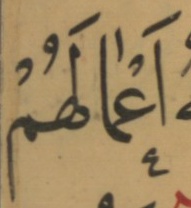 أَعْمَالَهُمْ